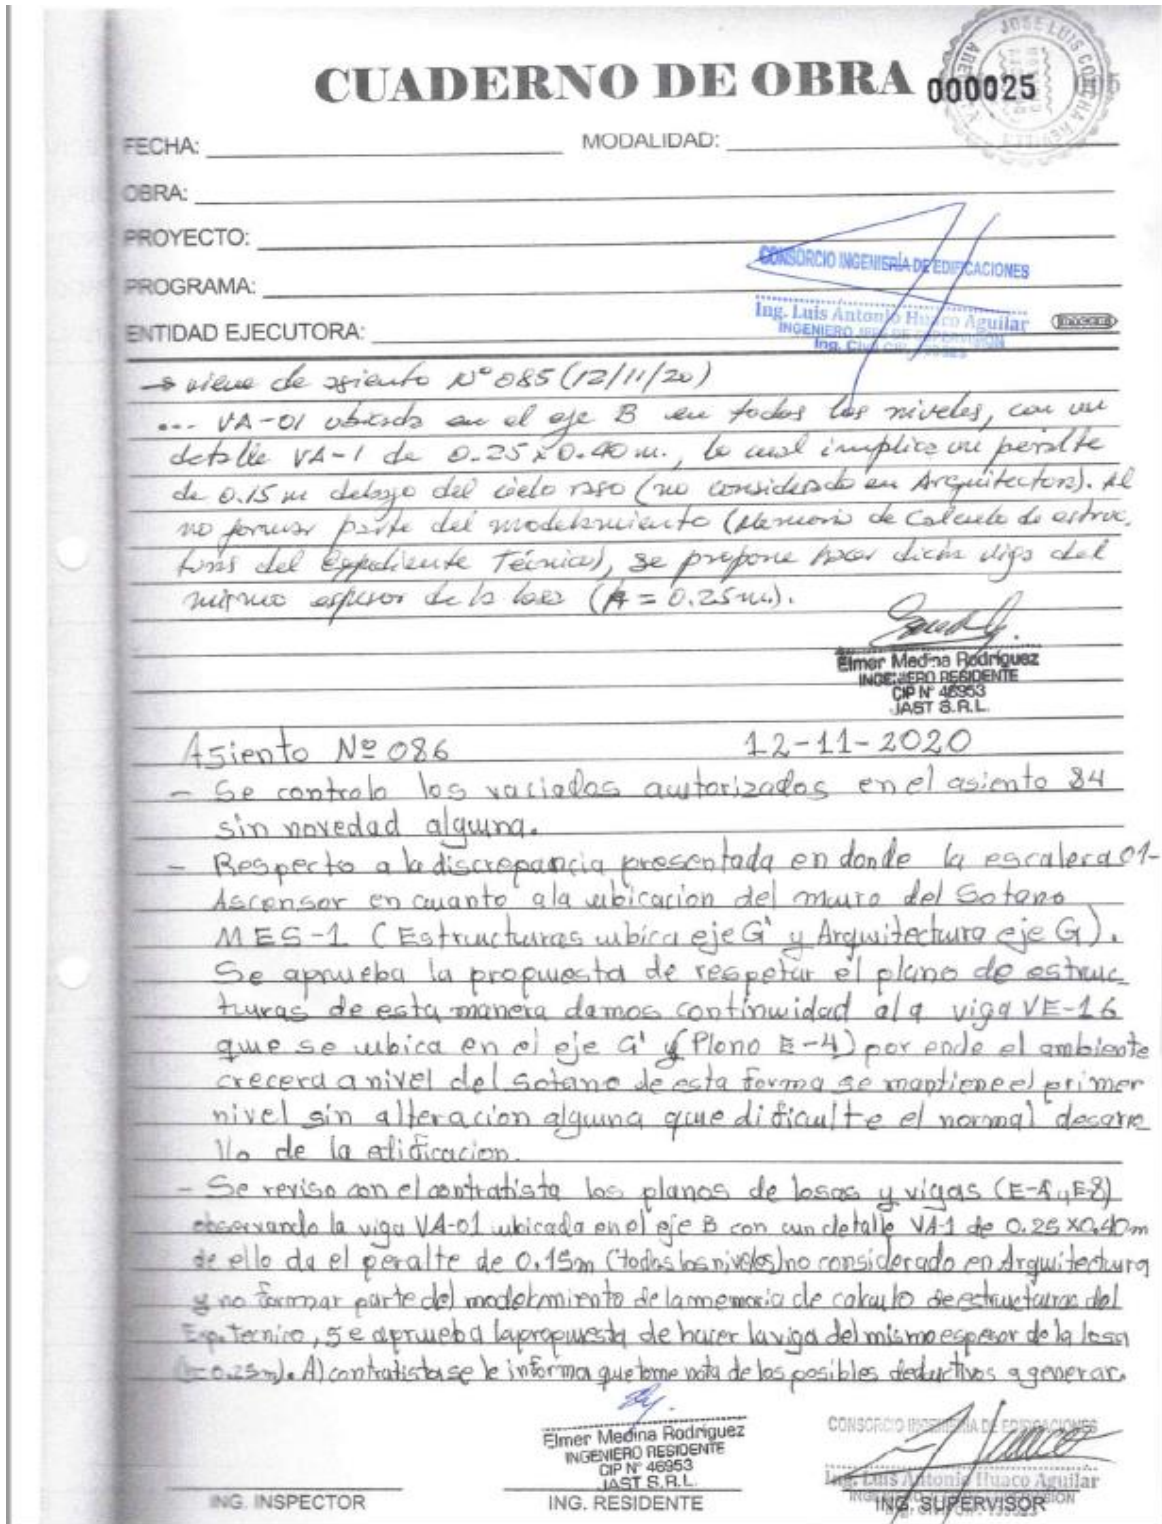 JOSE LUIS CONCHA REVILLA
CUADERNO DE OBRA 000025
FECHA: MODALIDAD:
OBRA:
PROYECTO:
CONSORCIO INGENIERÍA DE EDIFICACIONES
PROGRAMA:
Ing. Luis Antonio Huaco Aguilar
INGENIERO JEFE DE SUPERVISION
Ing. Civil CIP.
ENTIDAD EJECUTORA:
→ viene de asiento N° 085 (12/11/20)
... VA-01 ubicada en el eje B en todos los niveles, con un
detalle VA-1 de 0.25 x 0.40 m., lo cual implica un peralte
de 0.15 m debajo del cielo raso (no considerado en Arquitectura). Al
no formar parte del modelamiento (Memoria de Calculo de estruc.
turas del Expediente Técnico), se propone hacer dicha viga del
mismo espesor de la losa (h = 0.25 m.).
Elmer Medina Rodríguez
INGENIERO RESIDENTE
CIP N° 46953
JAST S.R.L.
Asiento Nº 086 12-11-2020
- Se controlo los vaciados autorizados en el asiento 84
sin novedad alguna.
- Respecto a la discrepancia presentada en donde la escalera 01-
Ascensor en cuanto a la ubicacion del muro del Sotano
MES-1 (Estructuras ubica eje G' y Arquitectura eje G).
Se aprueba la propuesta de respetar el plano de estruc
turas de esta manera damos continuidad al a viga VE-16
que se ubica en el eje G' y (Plono E-4) por ende el ambiente
crecera a nivel del sotano de esta forma se mantiene el primer
nivel sin alteracion alguna que dificulte el normal desarro
llo de la edificacion.
- Se reviso con el contratista los planos de losas y vigas (E-4, E-8)
observando la viga VA-01 ubicada en el eje B con un detalle VA-1 de 0.25 x 0.40m
de ello da el peralte de 0.15m (todos los niveles) no considerado en Arquitectura
y no formar parte del modelamiento de la memoria de calculo de estructuras del
Exp. Tecnico, se aprueba la propuesta de hacer la viga del mismo espesor de la losa
(= 0.25m). Al contratista se le informa que tome nota de los posibles deductivos a generar.
Elmer Medina Rodríguez
INGENIERO RESIDENTE
CIP N° 46953
JAST S.R.L.
CONSORCIO INGENIERIA DE EDIFICACIONES
Ing. Luis Antonio Huaco Aguilar
ING. INSPECTOR ING. RESIDENTE ING. SUPERVISOR